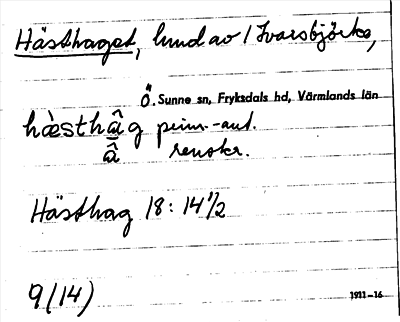 Hästhaget, lund av 1 Ivarsbjörke,
Ö. Sunne sn, Fryksdals hd, Värmlands län
hæ̀sthâ̱g prim.-ant.
â renskr.
Hästhag 18:14 1/2
9(14)
1911-16